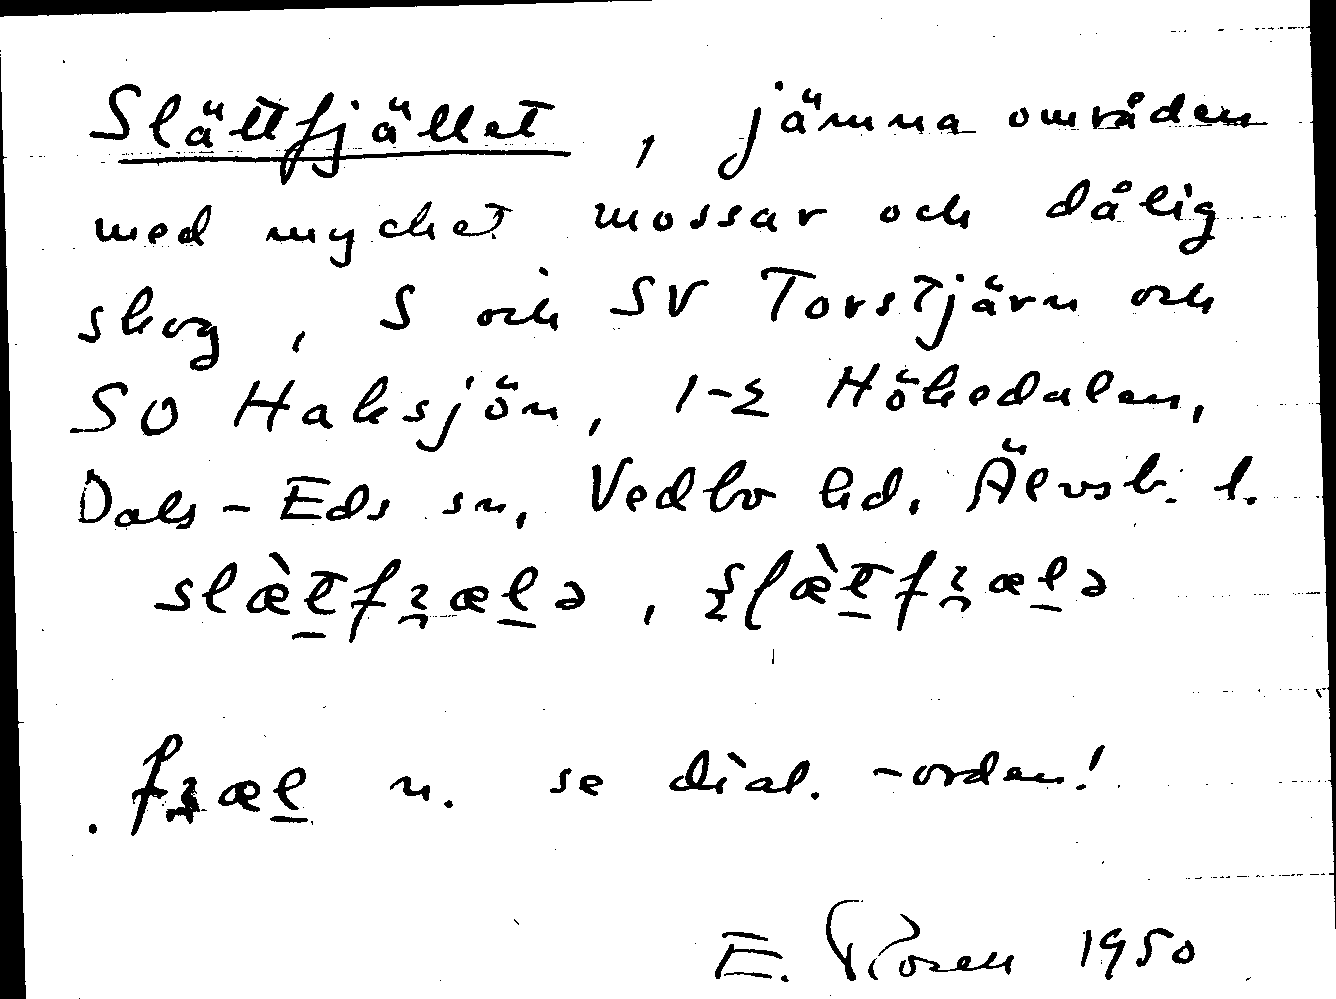 Slättfjället, jämna områden
med mycket mossar och dålig
skog, S och SV Torstjärn och
SO Haksjön, 1-2 Hökedalen,
Dals-Eds sn, Vedbo hd, Älvsb. l.
n. se dial. -orden!
E. Rosen 1950